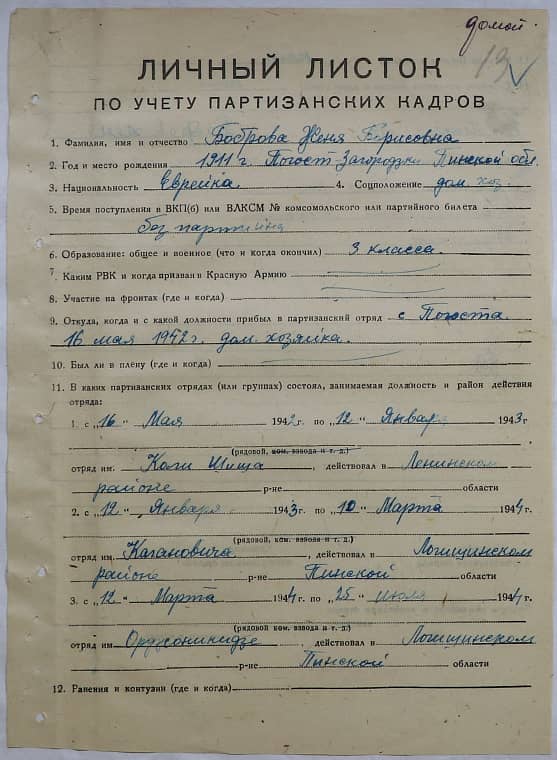 домой
13
ЛИЧНЫЙ ЛИСТОК
ПО УЧЕТУ ПАРТИЗАНСКИХ КАДРОВ
1. Фамилия, имя и отчество Боброва Женя Борисовна
2. Год и место рождения 1911 г. Погост-Загородзки Пинской обл.
3. Национальность Еврейка 4. Соцположение дом. хоз.
5. Время поступления в ВКП(б) или ВЛКСМ № комсомольского или партийного билета
без партийна
6. Образование: общее и военное (что и когда окончил) 3 класса.
7. Каким РВК и когда призван в Красную Армию
8. Участие на фронтах (где и когда)
9. Откуда, когда и с какой должности прибыл в партизанский отряд с Погоста
16 мая 1942 г. дом. хозяйка.
10. Был ли в плену (где и когда)
11. В каких партизанских отрядах (или группах) состоял, занимаемая должность и район действия
отряда:
1. с „16" Мая 1942 г. по „12" Января 1943 г
(рядовой, ком. взвода и т. д.)
отряд им. Шиша, действовал в Ленинском
районе р-не области
2. с „12" Января 1943 г. по „10" Марта 1944 г.
(рядовой, ком. взвода и т. д.)
отряд им. Кагановича, действовал в Логишинском
районе р-не Пинской области
3. с „12" Марта 1944 г. по „25" июля 1944 г.
(рядовой, ком. взвода и т. д.)
отряд им Орджоникидзе, действовал в Логишинском
р-не Пинской области
12. Ранения и контузии (где и когда)